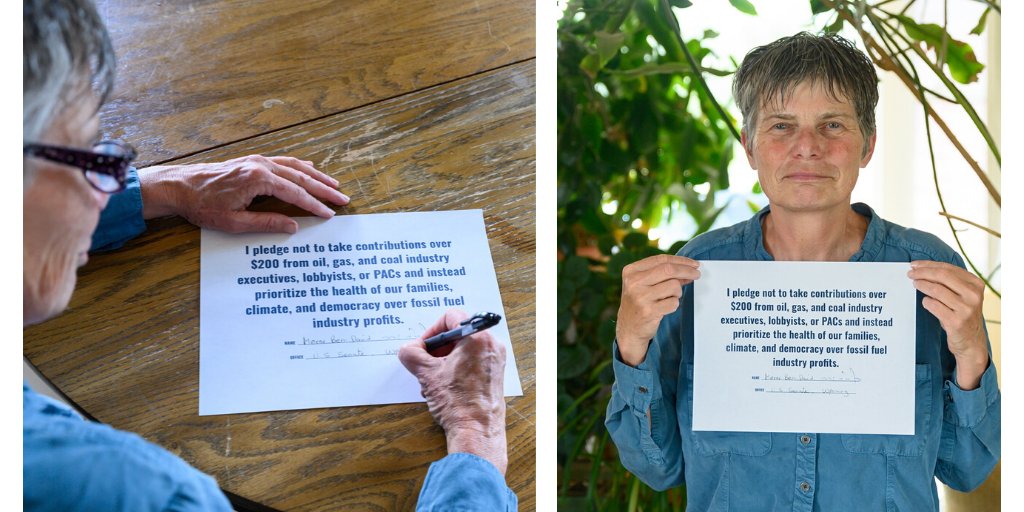 I pledge not to take contributions over
$200 from oil, gas, and coal industry
executives, lobbyists, or PACs and instead
prioritize the health of our families,
climate, and democracy over fossil fuel
industry profits.
NAME Merav Ben David
OFFICE U.S Senate
I pledge not to take contributions over
$200 from oil, gas, and coal industry
executives, lobbyists, or PACs and instead
prioritize the health of our families,
climate, and democracy over fossil fuel
industry profits.
NAME Merav Ben David
OFFICE U.S Senate Wyoming